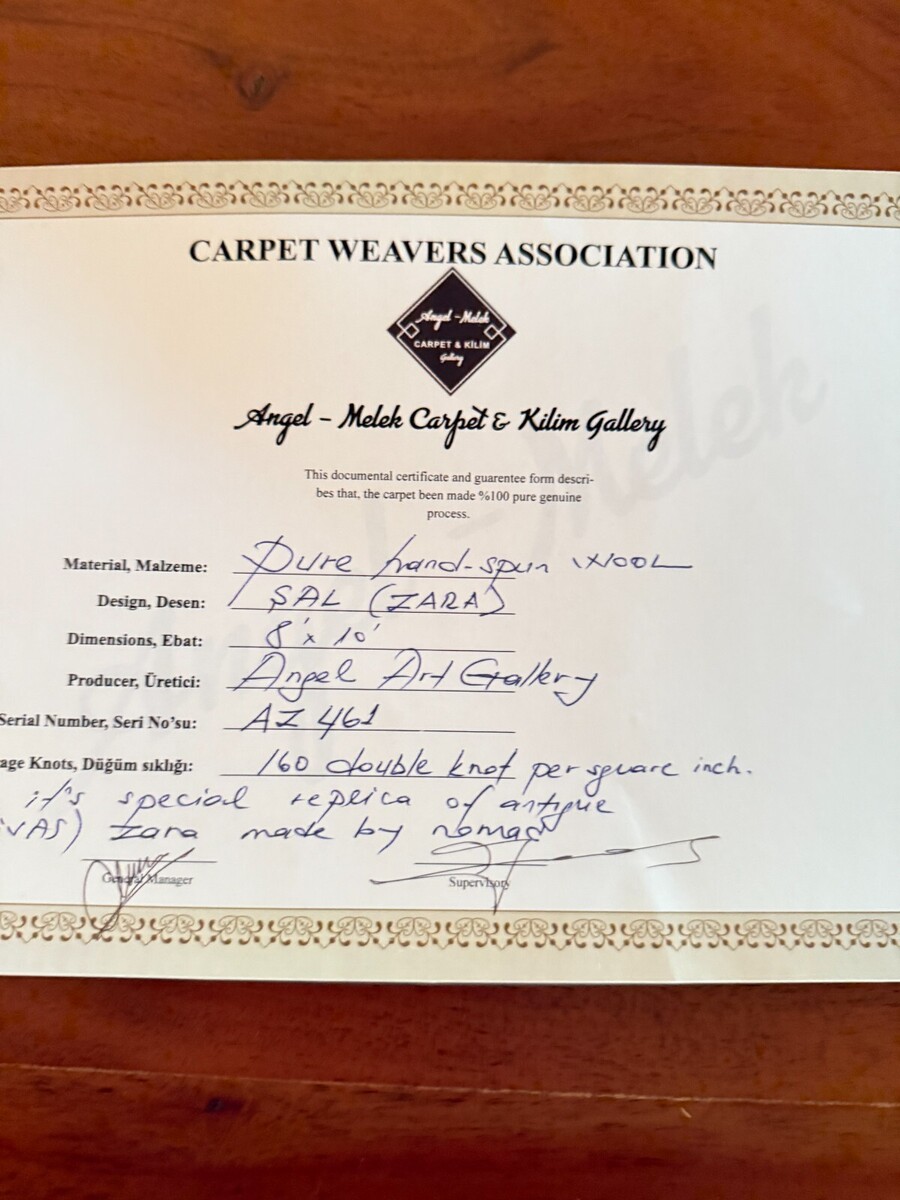 CARPET WEAVERS ASSOCIATION
Angel - Melek
CARPET & KİLİM
Gallery
Angel - Melek Carpet & Kilim Gallery
This documental certificate and guarentee form descri-
bes that, the carpet been made %100 pure genuine
process.
Material, Malzeme: Pure hand-spun WOOL
Design, Desen: ŞAL (ZARA)
Dimensions, Ebat: 8' x 10'
Producer, Üretici: Angel Art Gallery
Serial Number, Seri No'su: AZ 461
age Knots, Düğüm sıklığı: 160 double knot per square inch.
it's special replica of antique
VAS) Zara made by nomad
General Manager
Supervisory
Angel - Melek